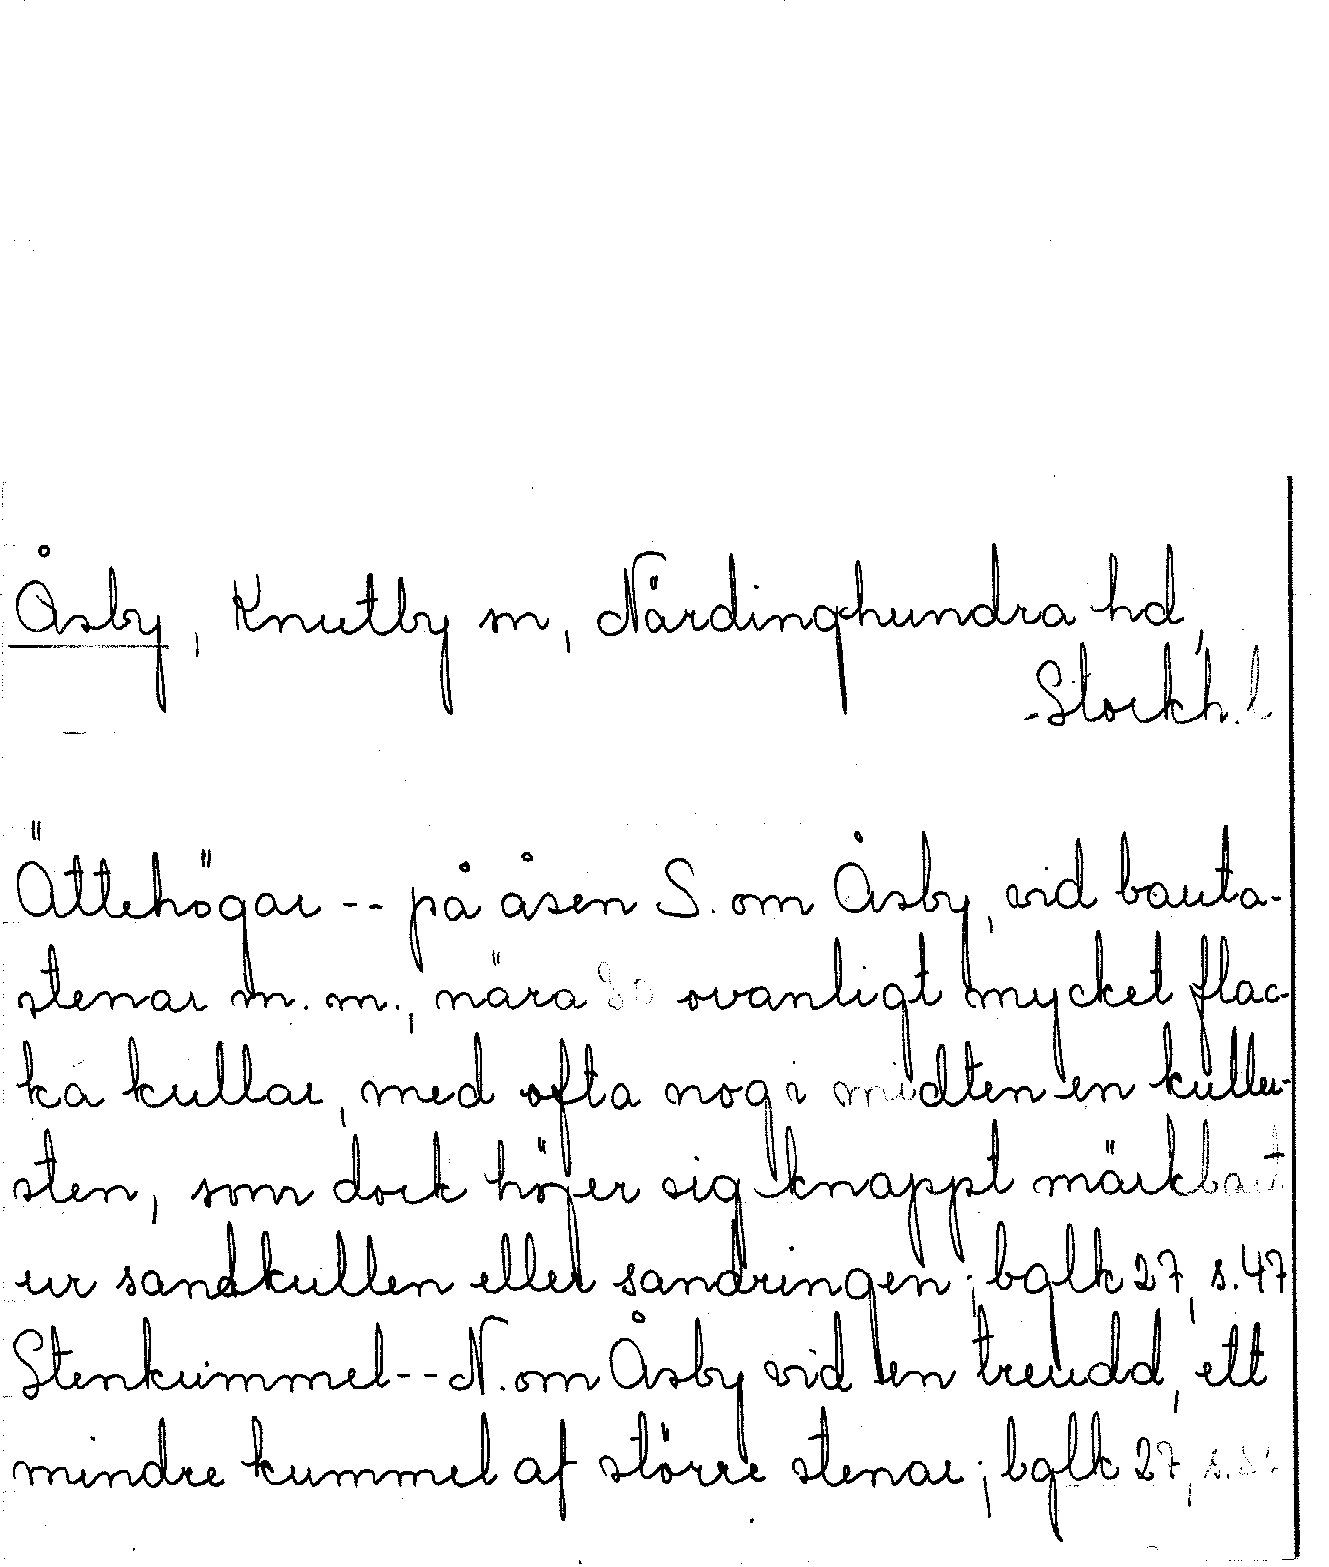 Åsby, Knutby sn, Närdinghundra hd,
Stockh. l
Ättehögar -- på åsen S. om Åsby, vid bauta-
stenar m. m., nära 80 ovanligt mycket flac-
ka kullar, med ofta nog i midten en kuller-
sten, som dock höjer sig knappt märkbart
ur sandkullen eller sandringen; bglk 27, s. 47
Stenkummel -- N. om Åsby vid en treudd, ett
mindre kummel af större stenar; bglk 27, s.